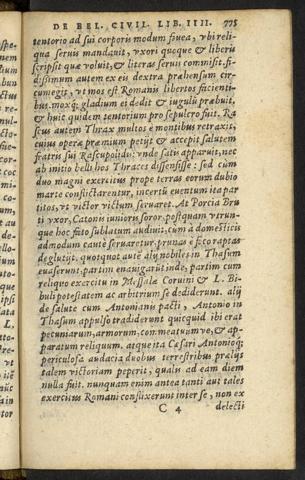 DE BEL. CIVIL. LIB. IIII. 775
tentorio ad sui corporis modum fouea, vbi reli-
qua seruis mandauit, vxori quoque & liberis
scripsit quæ voluit, & literas seruis commisit. fi-
dissimum autem ex eis dextra præhensum cir-
cumegit, vt mos est Romanis libertos facienti-
bus. moxq; gladium ei dedit & iugulũ præbuit,
& huic quidem tentorium pro sepulcro fuit. Ra
scus autem Thrax multos e montibus retraxit,
cuius operæ præmium petijt & accepit salutem
fratris sui Rascupolidi: vnde satis apparuit, nec
ab initio bellis hos Thraces dissensisse: sed cum
duo magni exercitus prope terras eorum dubio
marte conflictarentur, incertũ euentum ita par
titos, vt victor victum seruaret. At Porcia Bru
ti vxor, Catonis iunioris soror, postquam vtrun-
que hoc fato sublatum audiuit, cum a domesticis
admodum caute seruaretur, prunas e foco raptas
deglutijt. quotquot autẽ alij nobiles in Thasum
euaserunt, partim enauigarũt inde, partim cum
reliquo exercitu in Messalæ Coruini & L. Bi-
buli potestatem ac arbitrium se dediderunt. alij
de salute cum Antonianis pacti, Antonio in
Thasum appulso tradiderunt quicquid ibi erat
pecuniarum, armorum, commeatuum ve, & ap-
paratum reliquum. atque ita Cæsari Antonioq;
periculosa audacia duobus terrestribus prælijs
talem victoriam peperit, qualis ad eam diem
nulla fuit. nunquam enim antea tanti aut tales
exercitus Romani conflixerunt inter se, non ex
C 4 delecti